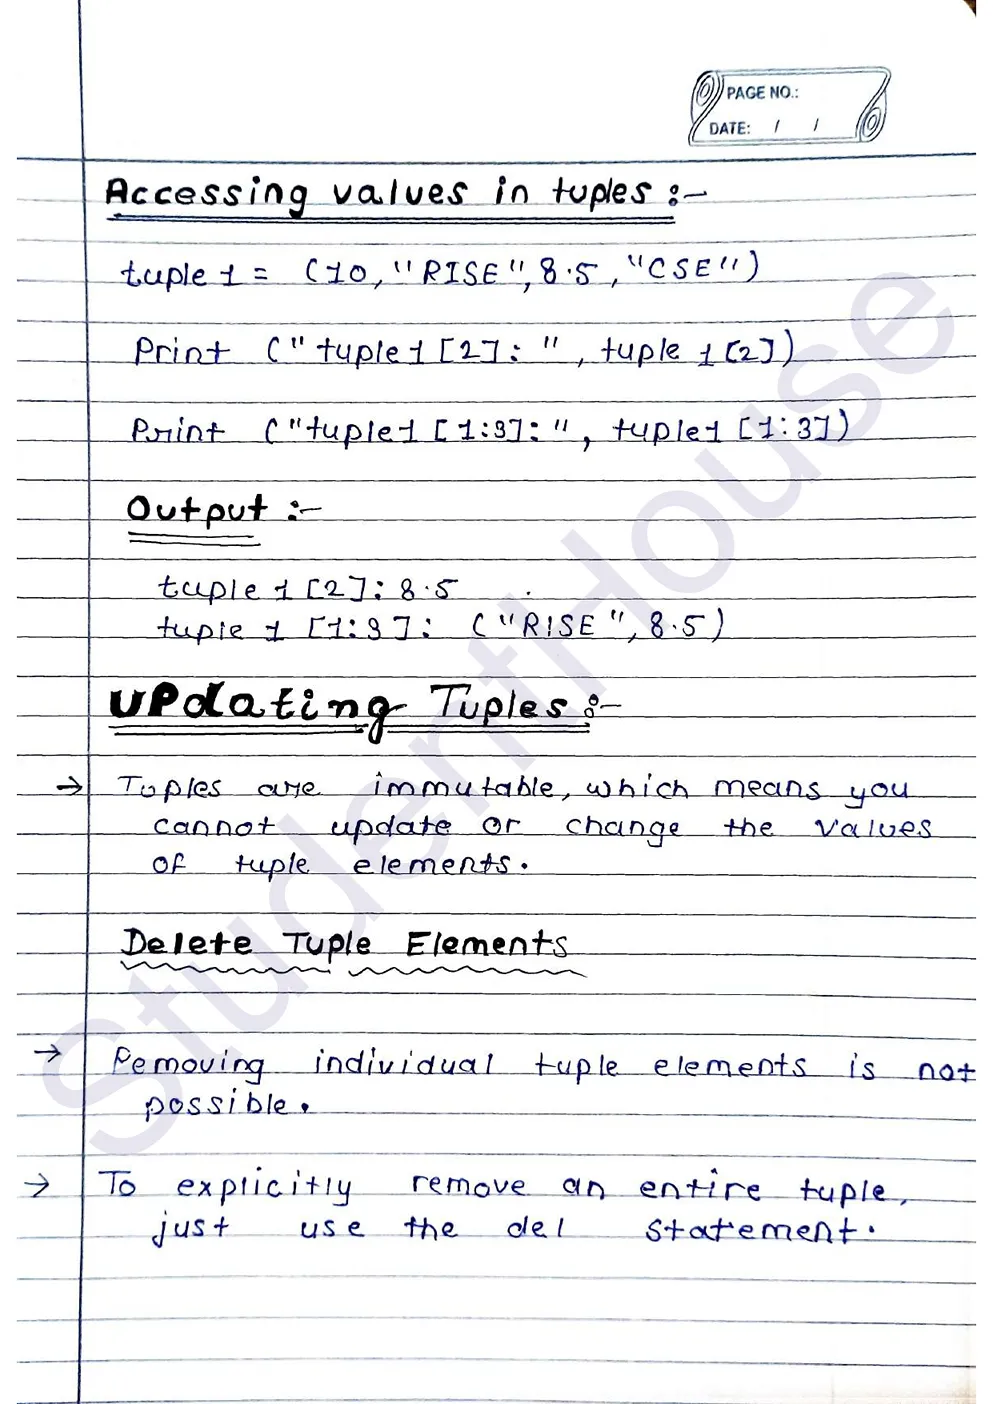 PAGE NO.:
DATE: / /
Accessing values in tuples :-
tuple 1 = (10, "RISE", 8.5, "CSE")
Print (" tuple1 [2]: ", tuple 1 [2])
Print ("tuple1 [1:3]: ", tuple1 [1:3])
Output :-
tuple 1 [2]: 8.5
tuple 1 [1:3]: ("RISE", 8.5)
UPdating Tuples :-
→ Tuples are immutable, which means you
cannot update or change the values
of tuple elements.
Delete Tuple Elements
→ Removing individual tuple elements is not
possible.
→ To explicitly remove an entire tuple,
just use the del statement.
StudentHouse